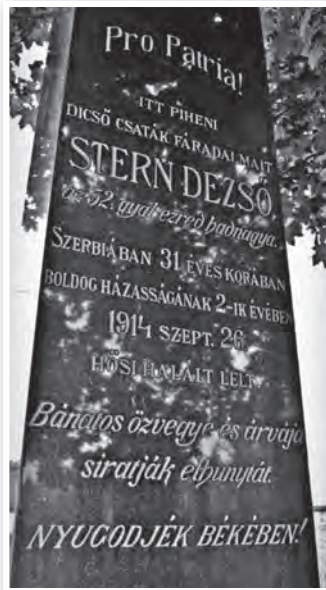 Pro Patria!
ITT PIHENI
DICSŐ CSATÁK FÁRADALMAIT
STERN DEZSŐ,
az 52. gyal. ezred hadnagya.
SZERBIÁBAN 31 ÉVES KORÁBAN
BOLDOG HÁZASSÁGÁNAK 2-IK ÉVÉBEN
1914 SZEPT. 26
HŐSI HALÁLT LELT.
Bánatos özvegye és árvája
siratják elhunytát.
NYUGODJÉK BÉKÉBEN!